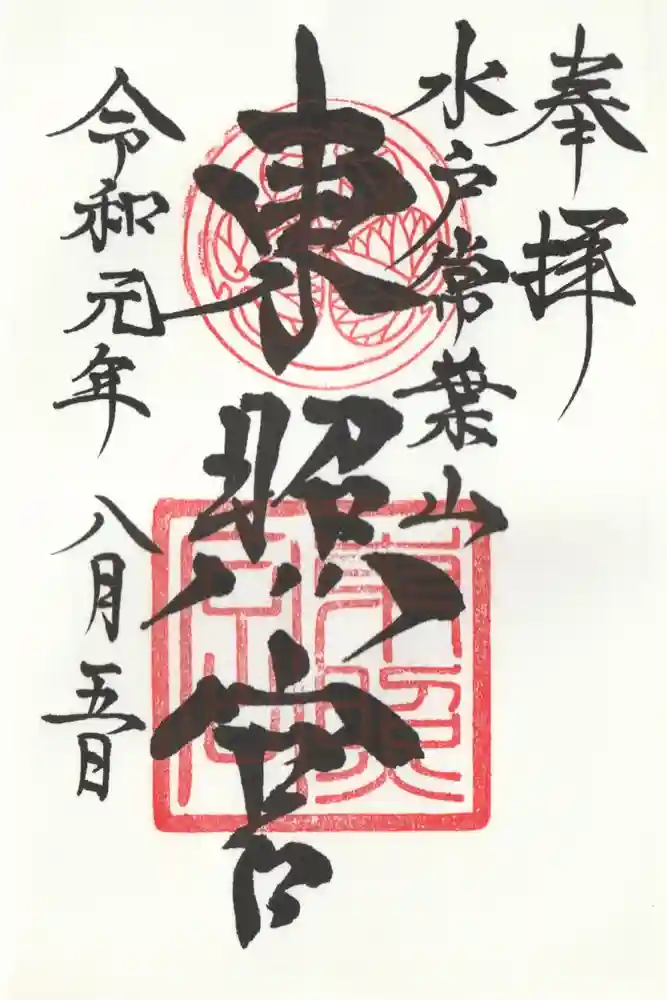 奉拝
水戸常葉山
東照宮
令和元年
八月五日